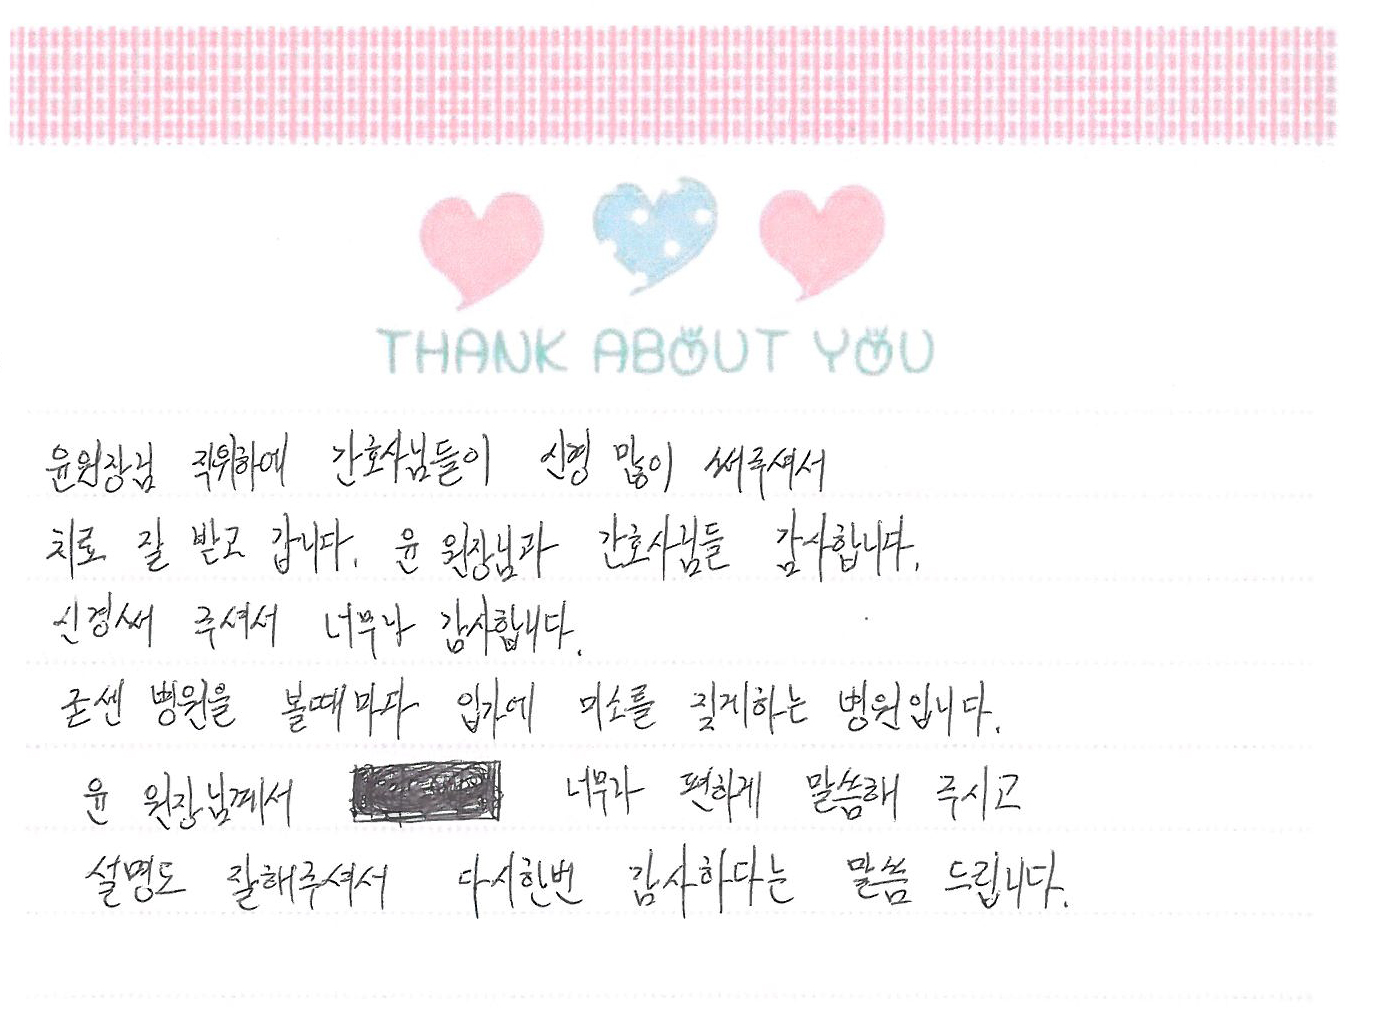 THANK ABOUT YOU
윤원장님 직위하에 간호사님들이 신경 많이 써주셔서
치료 잘 받고 갑니다. 윤 원장님과 간호사님들 감사합니다.
신경써 주셔서 너무나 감사합니다.
굳센 병원을 볼때마다 입가에 미소를 짖게하는 병원입니다.
윤 원장님께서 너무라 편하게 말씀해 주시고
설명도 잘해주셔서 다시한번 감사하다는 말씀 드립니다.